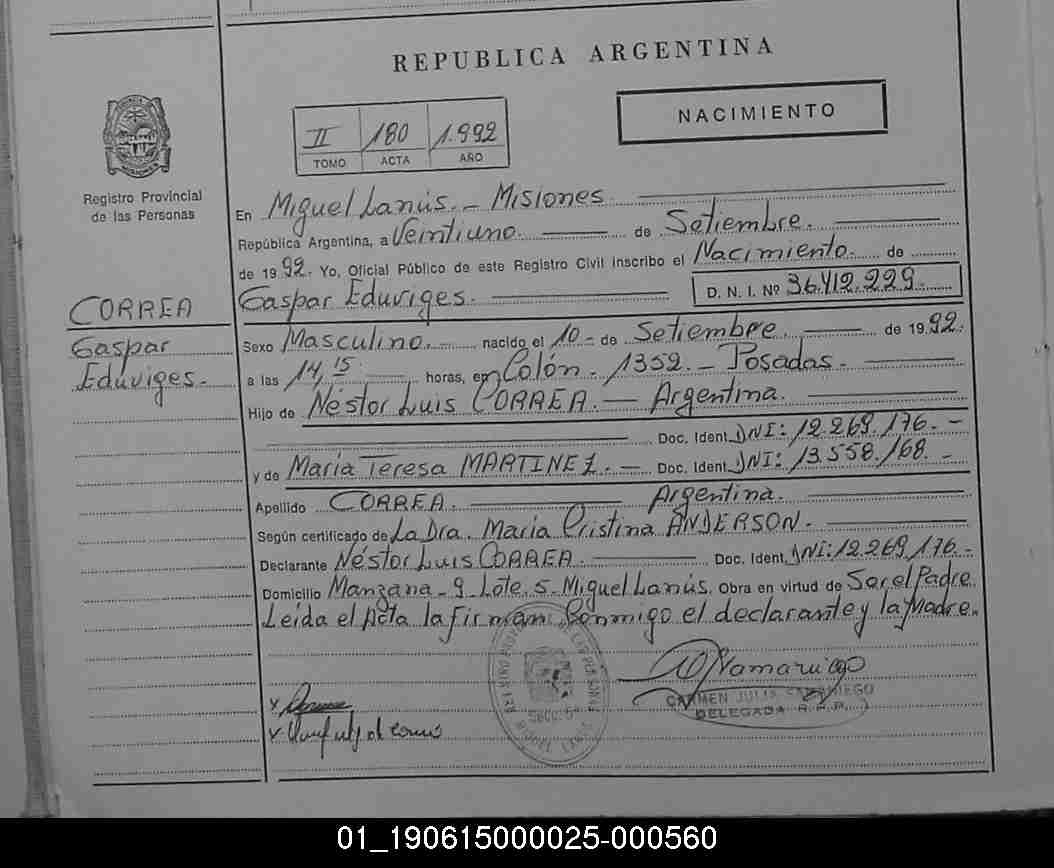 REPUBLICA ARGENTINA
NACIMIENTO
II 180 1.992
TOMO ACTA AÑO
Registro Provincial
de las Personas
En Miguel Lanús. - Misiones
República Argentina, a Veintiuno. de Setiembre.
de 19 92. Yo, Oficial Público de este Registro Civil inscribo el Nacimiento. de
Gaspar Eduviges. D. N. I. Nº 36.412.229.
CORREA
Gaspar
Eduviges.
Sexo Masculino. nacido el 10 - de Setiembre. de 19 92.
a las 14,15 horas, en Colón. 1352. - Posadas.
Hijo de Néstor Luis CORREA. - Argentina.
Doc. Ident. DNI: 12.269.176. -
y de María Teresa MARTINEZ. - Doc. Ident. DNI: 13.558.168. -
Apellido CORREA. Argentina.
Según certificado de La Dra. María Cristina ANDERSON.
Declarante Néstor Luis CORREA. Doc. Ident. DNI: 12.269.176. -
Domicilio Manzana - 9 - Lote. 5. Miguel Lanús. Obra en virtud de Ser el Padre.
Leída el Acta la firman Conmigo el declarante y la Madre.
CARMEN JULIA SAMANIEGO
DELEGADA R.P.P.
01_190615000025-000560